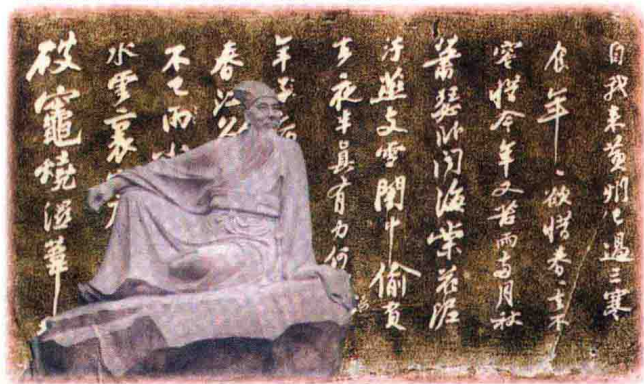 自我来黄州已過三寒
食年〻欲惜春〻去不
容惜今年又苦雨兩月秋
蕭瑟卧聞海棠花泥
污燕支雪闇中偷負
去夜半真有力何
年
春江
不已雨
水雲裏
破竈燒濕葦